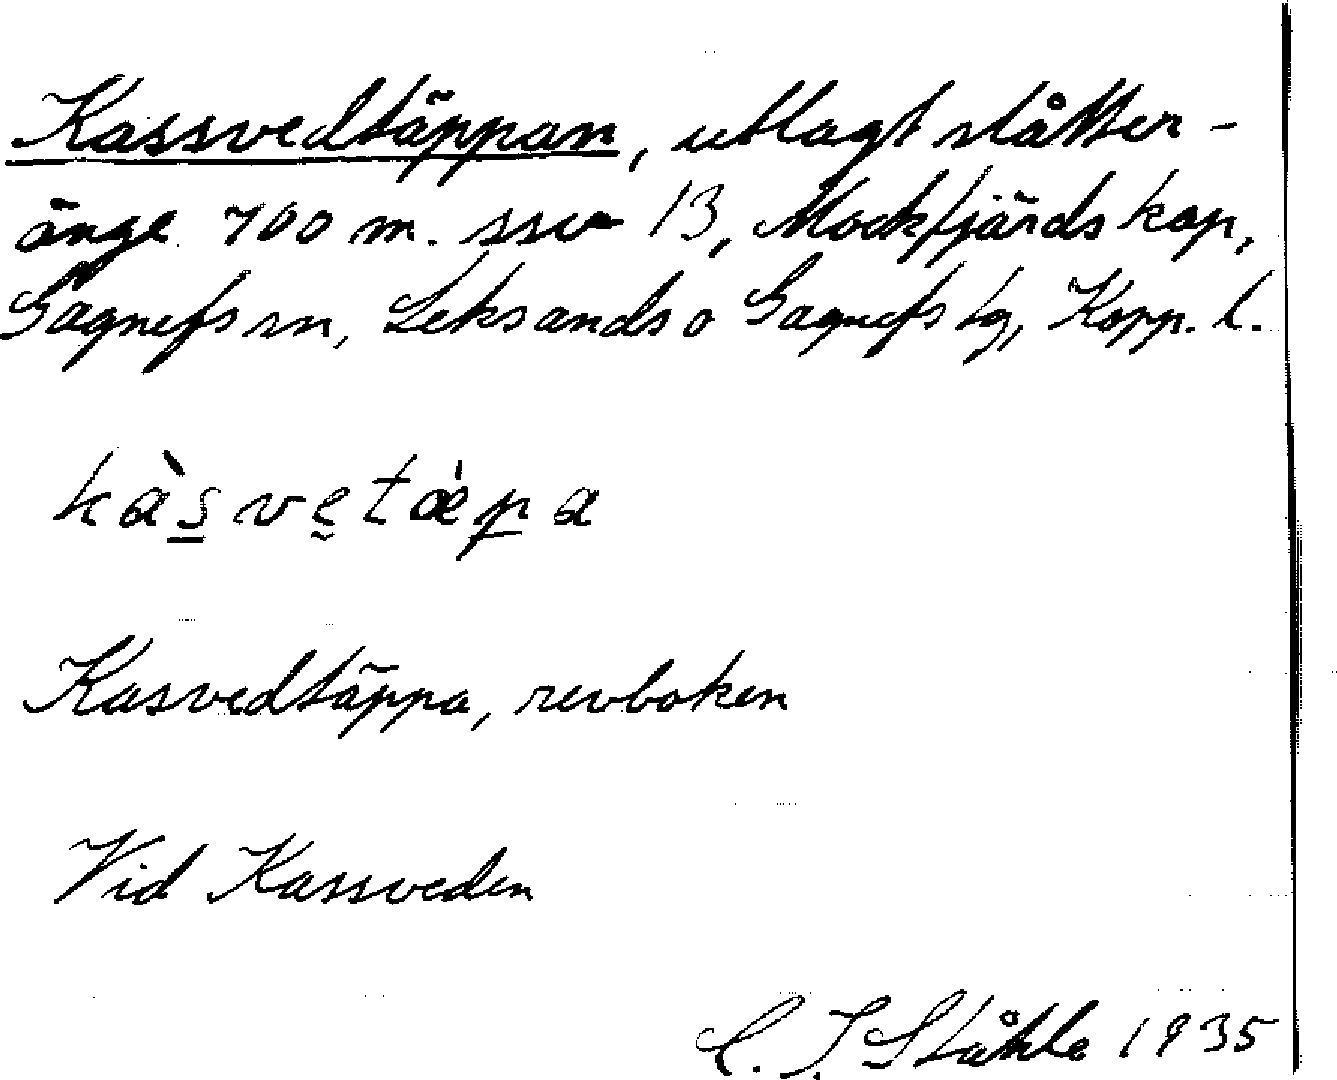 Kassvedtäppan, utlagt slåtter-
änge 700 m. ssv 13, Mockfjärds kap,
Gagnefs sn, Leksands o Gagnefs tg, Kopp. l.
kàs̲ve̮tæ̍p̲a
Kasvedtäppa, revboken
Vid Kassveden
C. I. Ståhle 1935